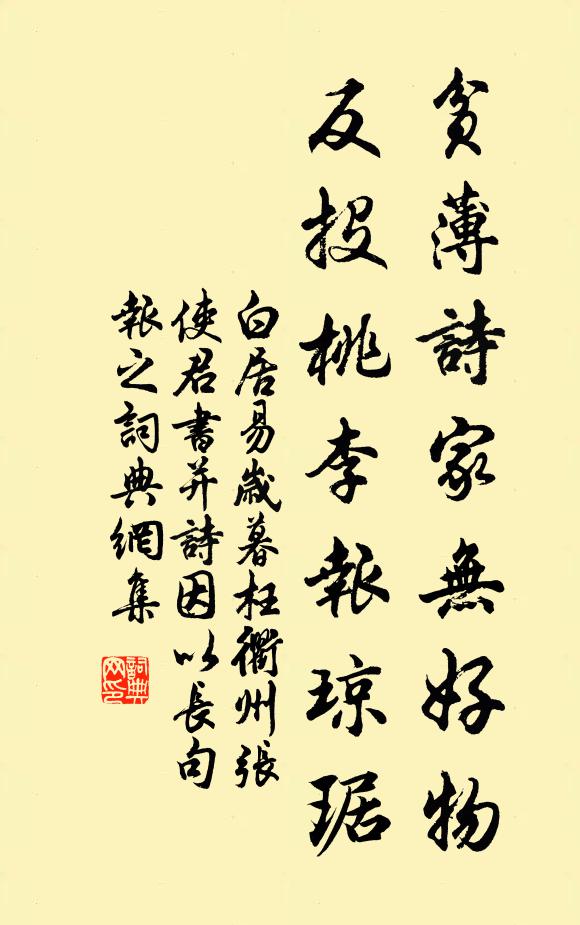 貧薄詩家無好物
反投桃李報琼琚
白居易歲暮枉衢州張
使君書并詩因以長句
報之詞典網集
詞典
网印